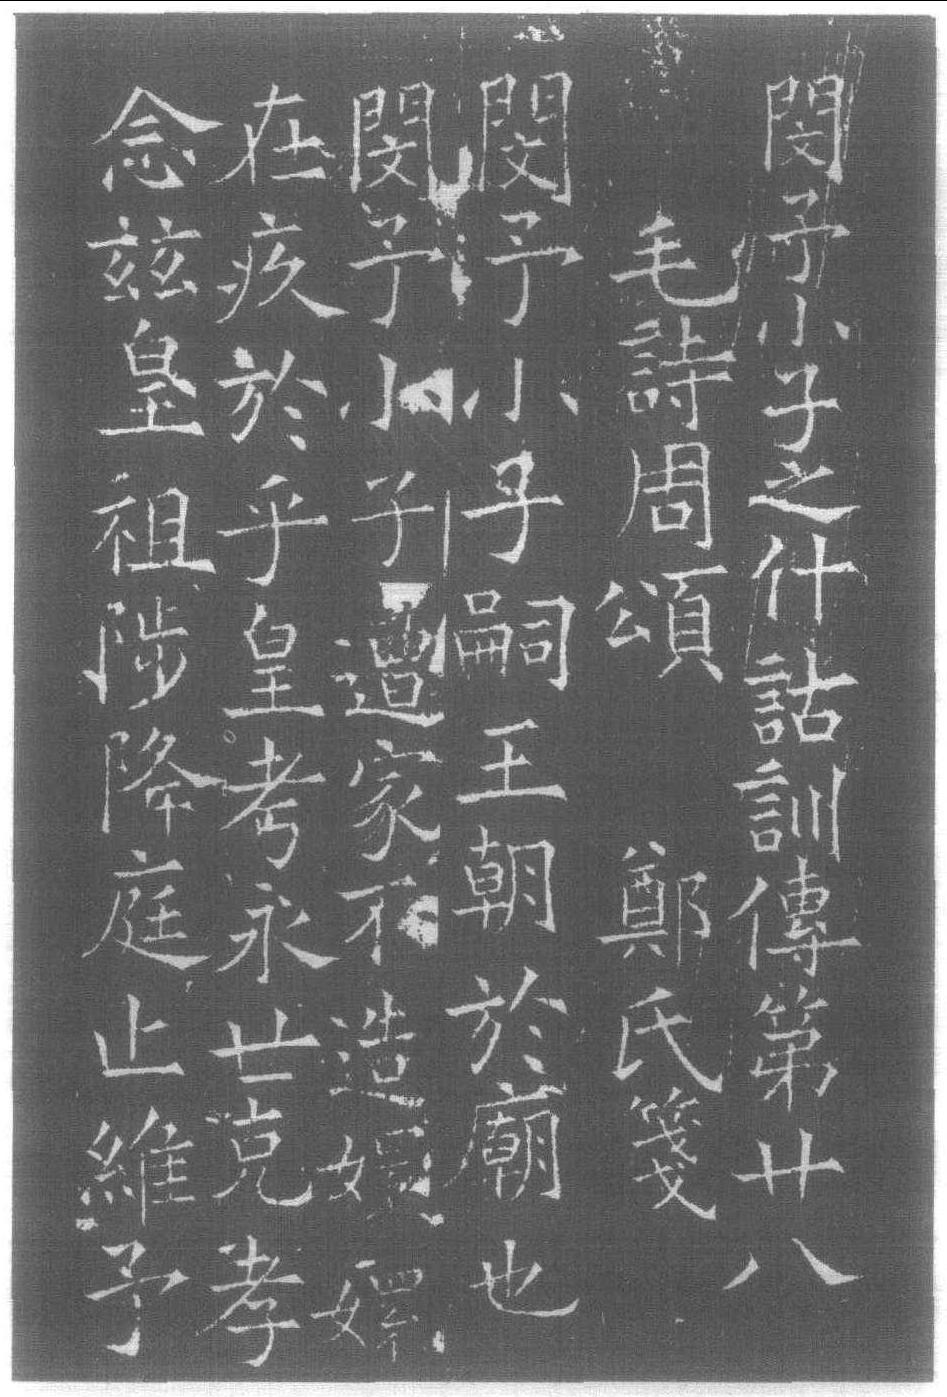 閔予小子之什詁訓傳第廿八
毛詩周頌 鄭氏箋
閔予小子嗣王朝於廟也
閔予小子遭家不造嬛嬛
在疚於乎皇考永世克孝
念兹皇祖陟降庭止維予